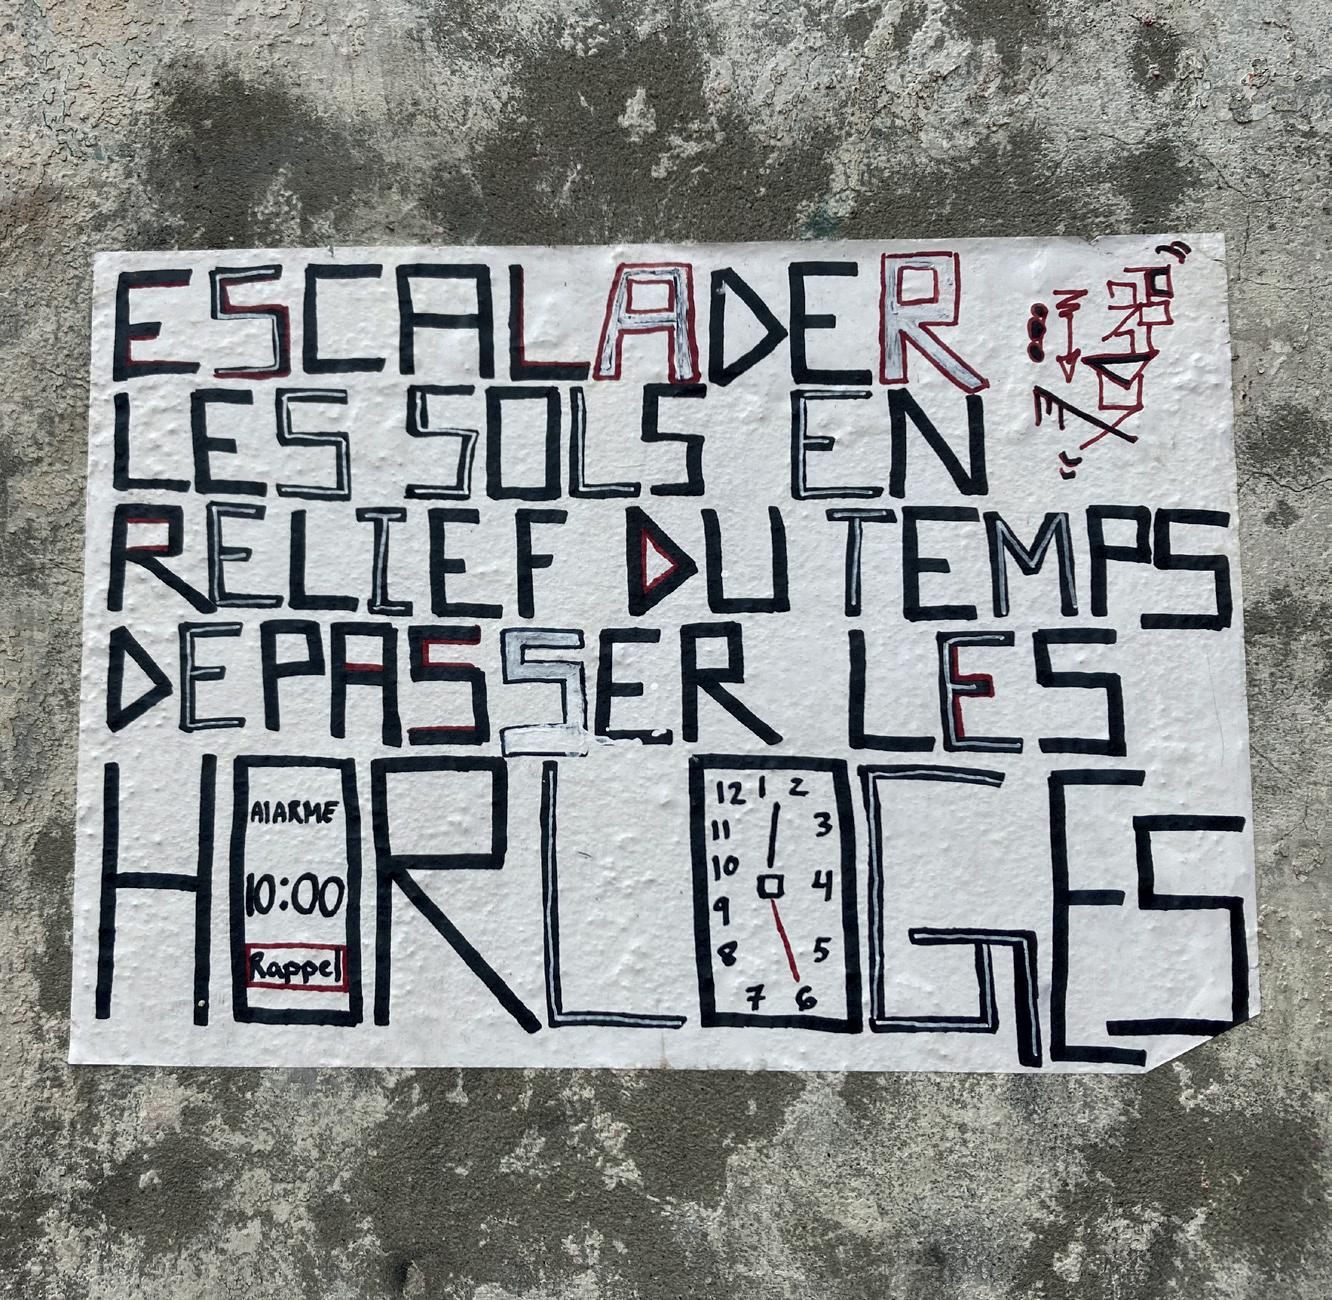 ESCALADER
LES SOLS EN
RELIEF DU TEMPS
DEPASSER LES
HORLOGES
AlARME
10:00
Rappel
12 1 2
11 3
10 4
9
8 5
7 6